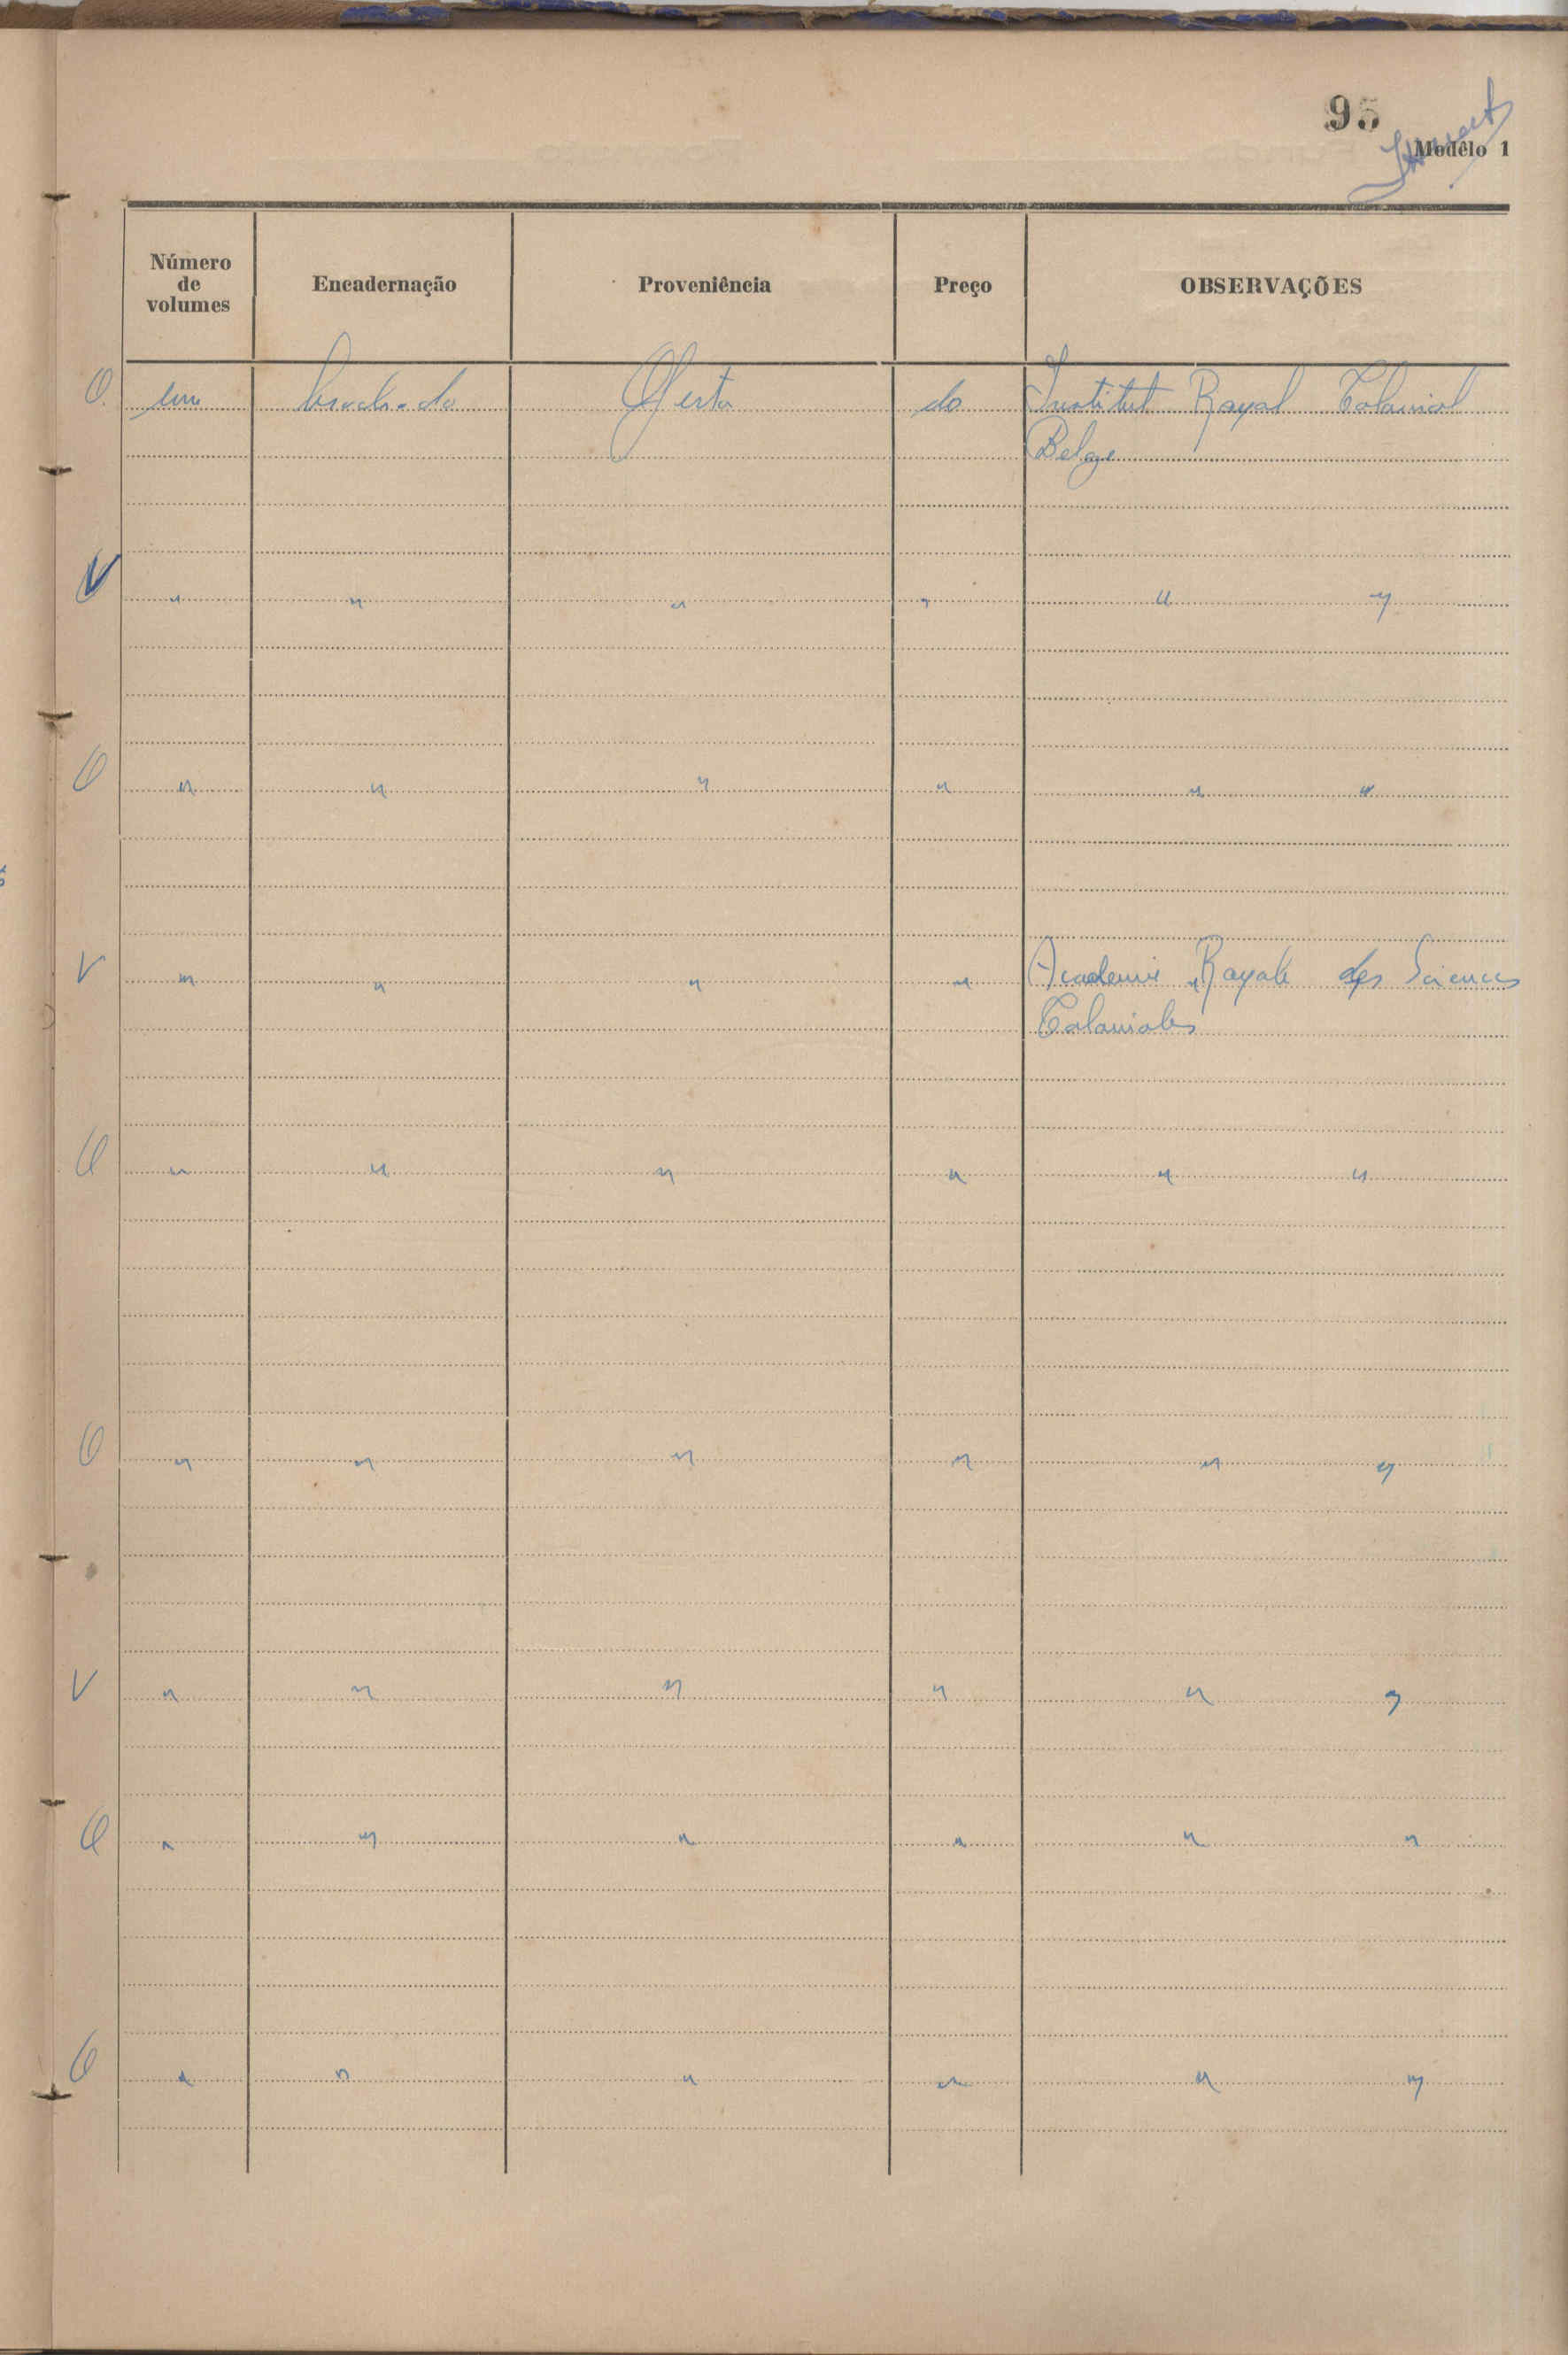 95
Modêlo 1
Número de volumes Encadernação Proveniência Preço OBSERVAÇÕES
O um brochado Oferta do Institut Royal Colonial
Belge
V " " " " " "
O " " " " " "
V " " " " Academie " Royale des Sciences
Coloniales
O " " " " " "
O " " " " " "
V " " " " " "
O " " " " " "
O " " " " " "